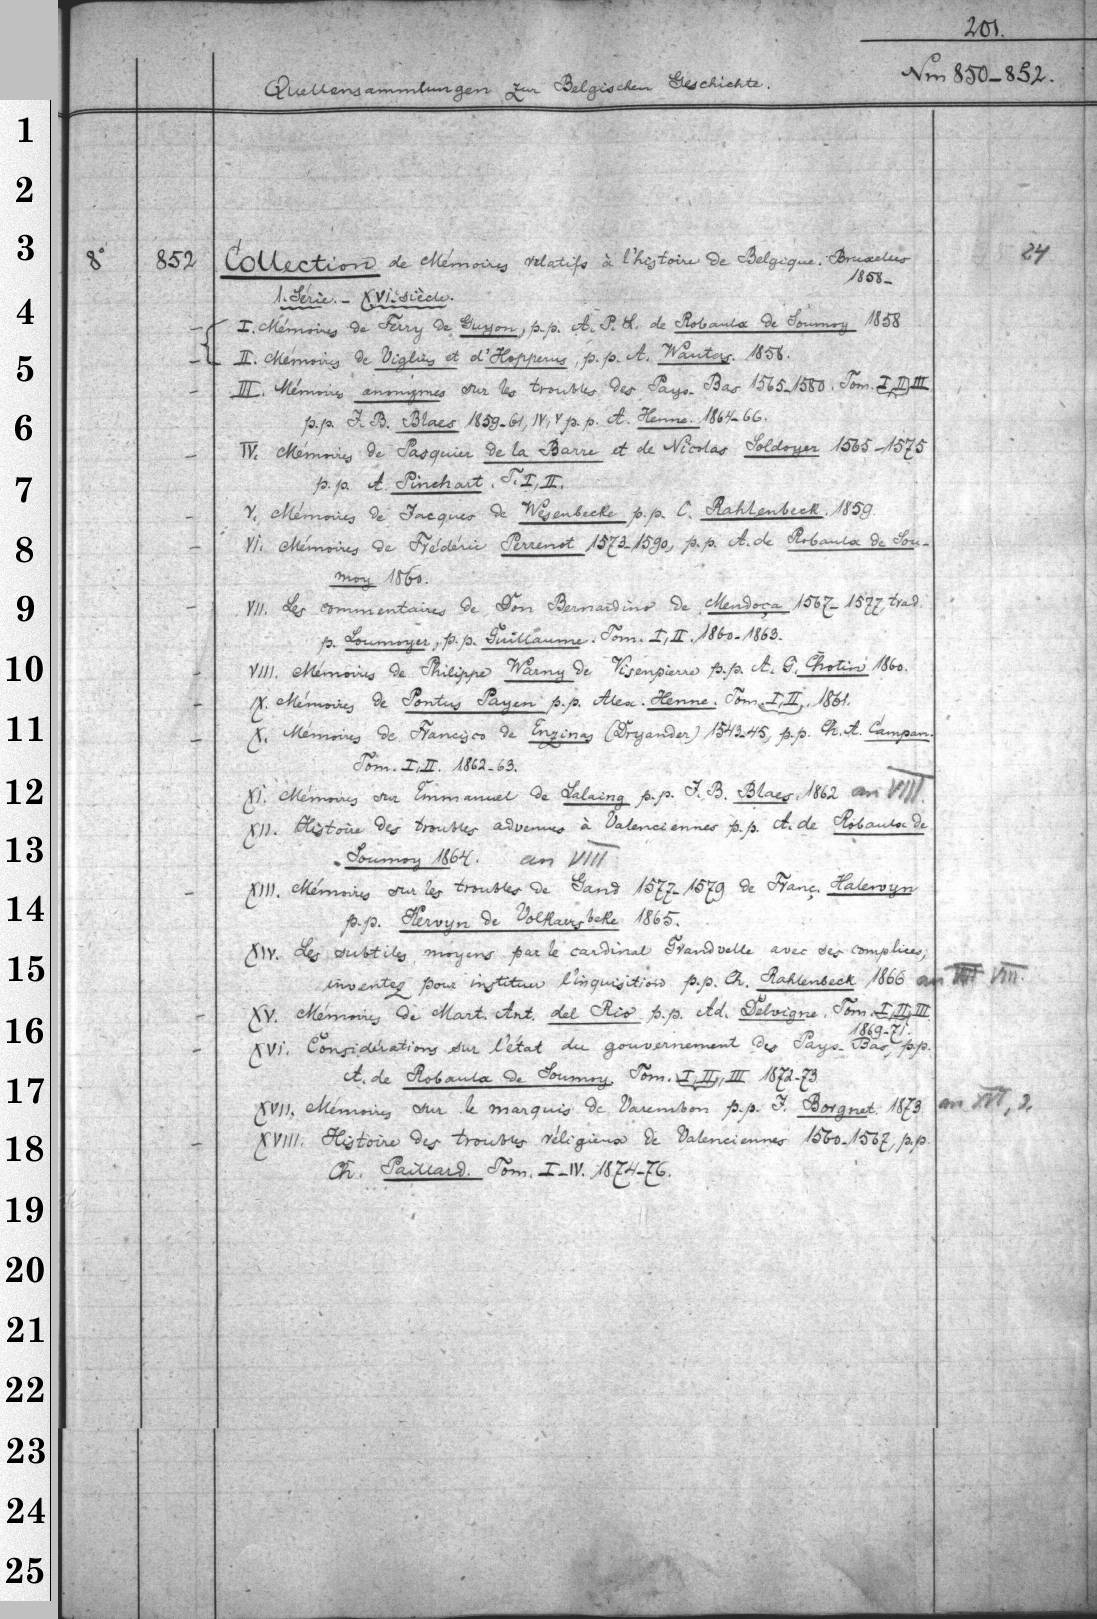 201.
Nm 850–852.
Quellensammlungen zur Belgischen Geschichte.
1
2
3
8° 852 Collection de Mémoires relatifs à l'histoire de Belgique. Bruxelles 24
1858–
1. Série. – XVI. siècle.
4
I. Mémoires de Ferry de Guyon, p.p. A. P. L. de Robaulx de Soumoy 1858
II. Mémoires de Viglius et d'Hopperus, p.p. A. Wauters. 1858.
5
III. Mémoires anonymes sur les troubles des Pays-Bas 1565–1580. Tom. I, II, III
6
p.p. J. B. Blaes 1859–61, IV, V p.p. A. Henne. 1864–66.
IV. Mémoires de Pasquier de la Barre et de Nicolas Soldoyer 1565–1575
7
p.p. A. Pinchart. T. I, II.
V. Mémoires de Jacques de Wesenbecke p.p. C. Rahlenbeck. 1859
8
VI. Mémoires de Frédéric Perrenot 1573–1590, p.p. A. de Robaulx de Sou-
moy 1860.
9
VII. Les commentaires de Don Bernardino de Mendoça 1567–1577 trad.
p. Loumoyer, p.p. Guillaume. Tom. I, II. 1860–1863.
10
VIII. Mémoires de Philippe Warny de Visenpierre p.p. A. G. Chotin 1860.
X. Mémoires de Pontus Payen p.p. Alex. Henne. Tom. I, II. 1861.
11
X. Mémoires de Francisco de Enzinas (Dryander) 1543–45, p.p. Ch. A. Campan.
Tom. I, II. 1862–63.
12
XI. Mémoires sur Emmanuel de Lalaing p.p. J. B. Blaes. 1862 an VIII.
XII. Histoire des troubles advenues à Valenciennes p.p. A. de Robaulx de
13
Soumoy 1864. an VIII
XIII. Mémoires sur les troubles de Gand 1577–1579 de Franç. Halewyn
14
p.p. Kervyn de Volkaersbeke 1865.
XIV. Les subtiles moyens par le cardinal Grandvelle avec ses complices,
15
inventez pour instituer l'inquisition p.p. Ch. Rahlenbeck 1866 an VIII.
XV. Mémoires de Mart. Ant. del Rio p.p. Ad. Delvigne. Tom. I, II, III
16
1869–71.
XVI. Considérations sur l'état du gouvernement des Pays-Bas, p.p.
A. de Robaulx de Soumoy. Tom. I, II, III 1872–73
17
XVII. Mémoires sur le marquis de Varembon p.p. J. Borgnet. 1873 an XVI, 2.
18
XVIII. Histoire des troubles réligieux de Valenciennes 1560–1567, p.p.
Ch. Paillard. Tom. I–IV. 1874–76.
19
20
21
22
23
24
25